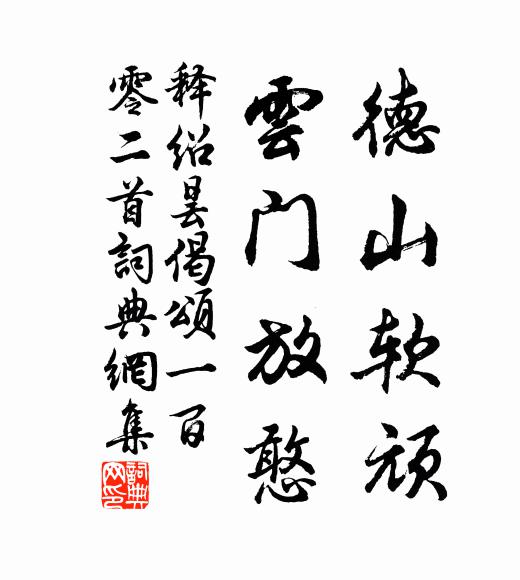 德山软顽
雲门放憨
释绍昙偈頌一百
零二首詞典網集
詞典网印